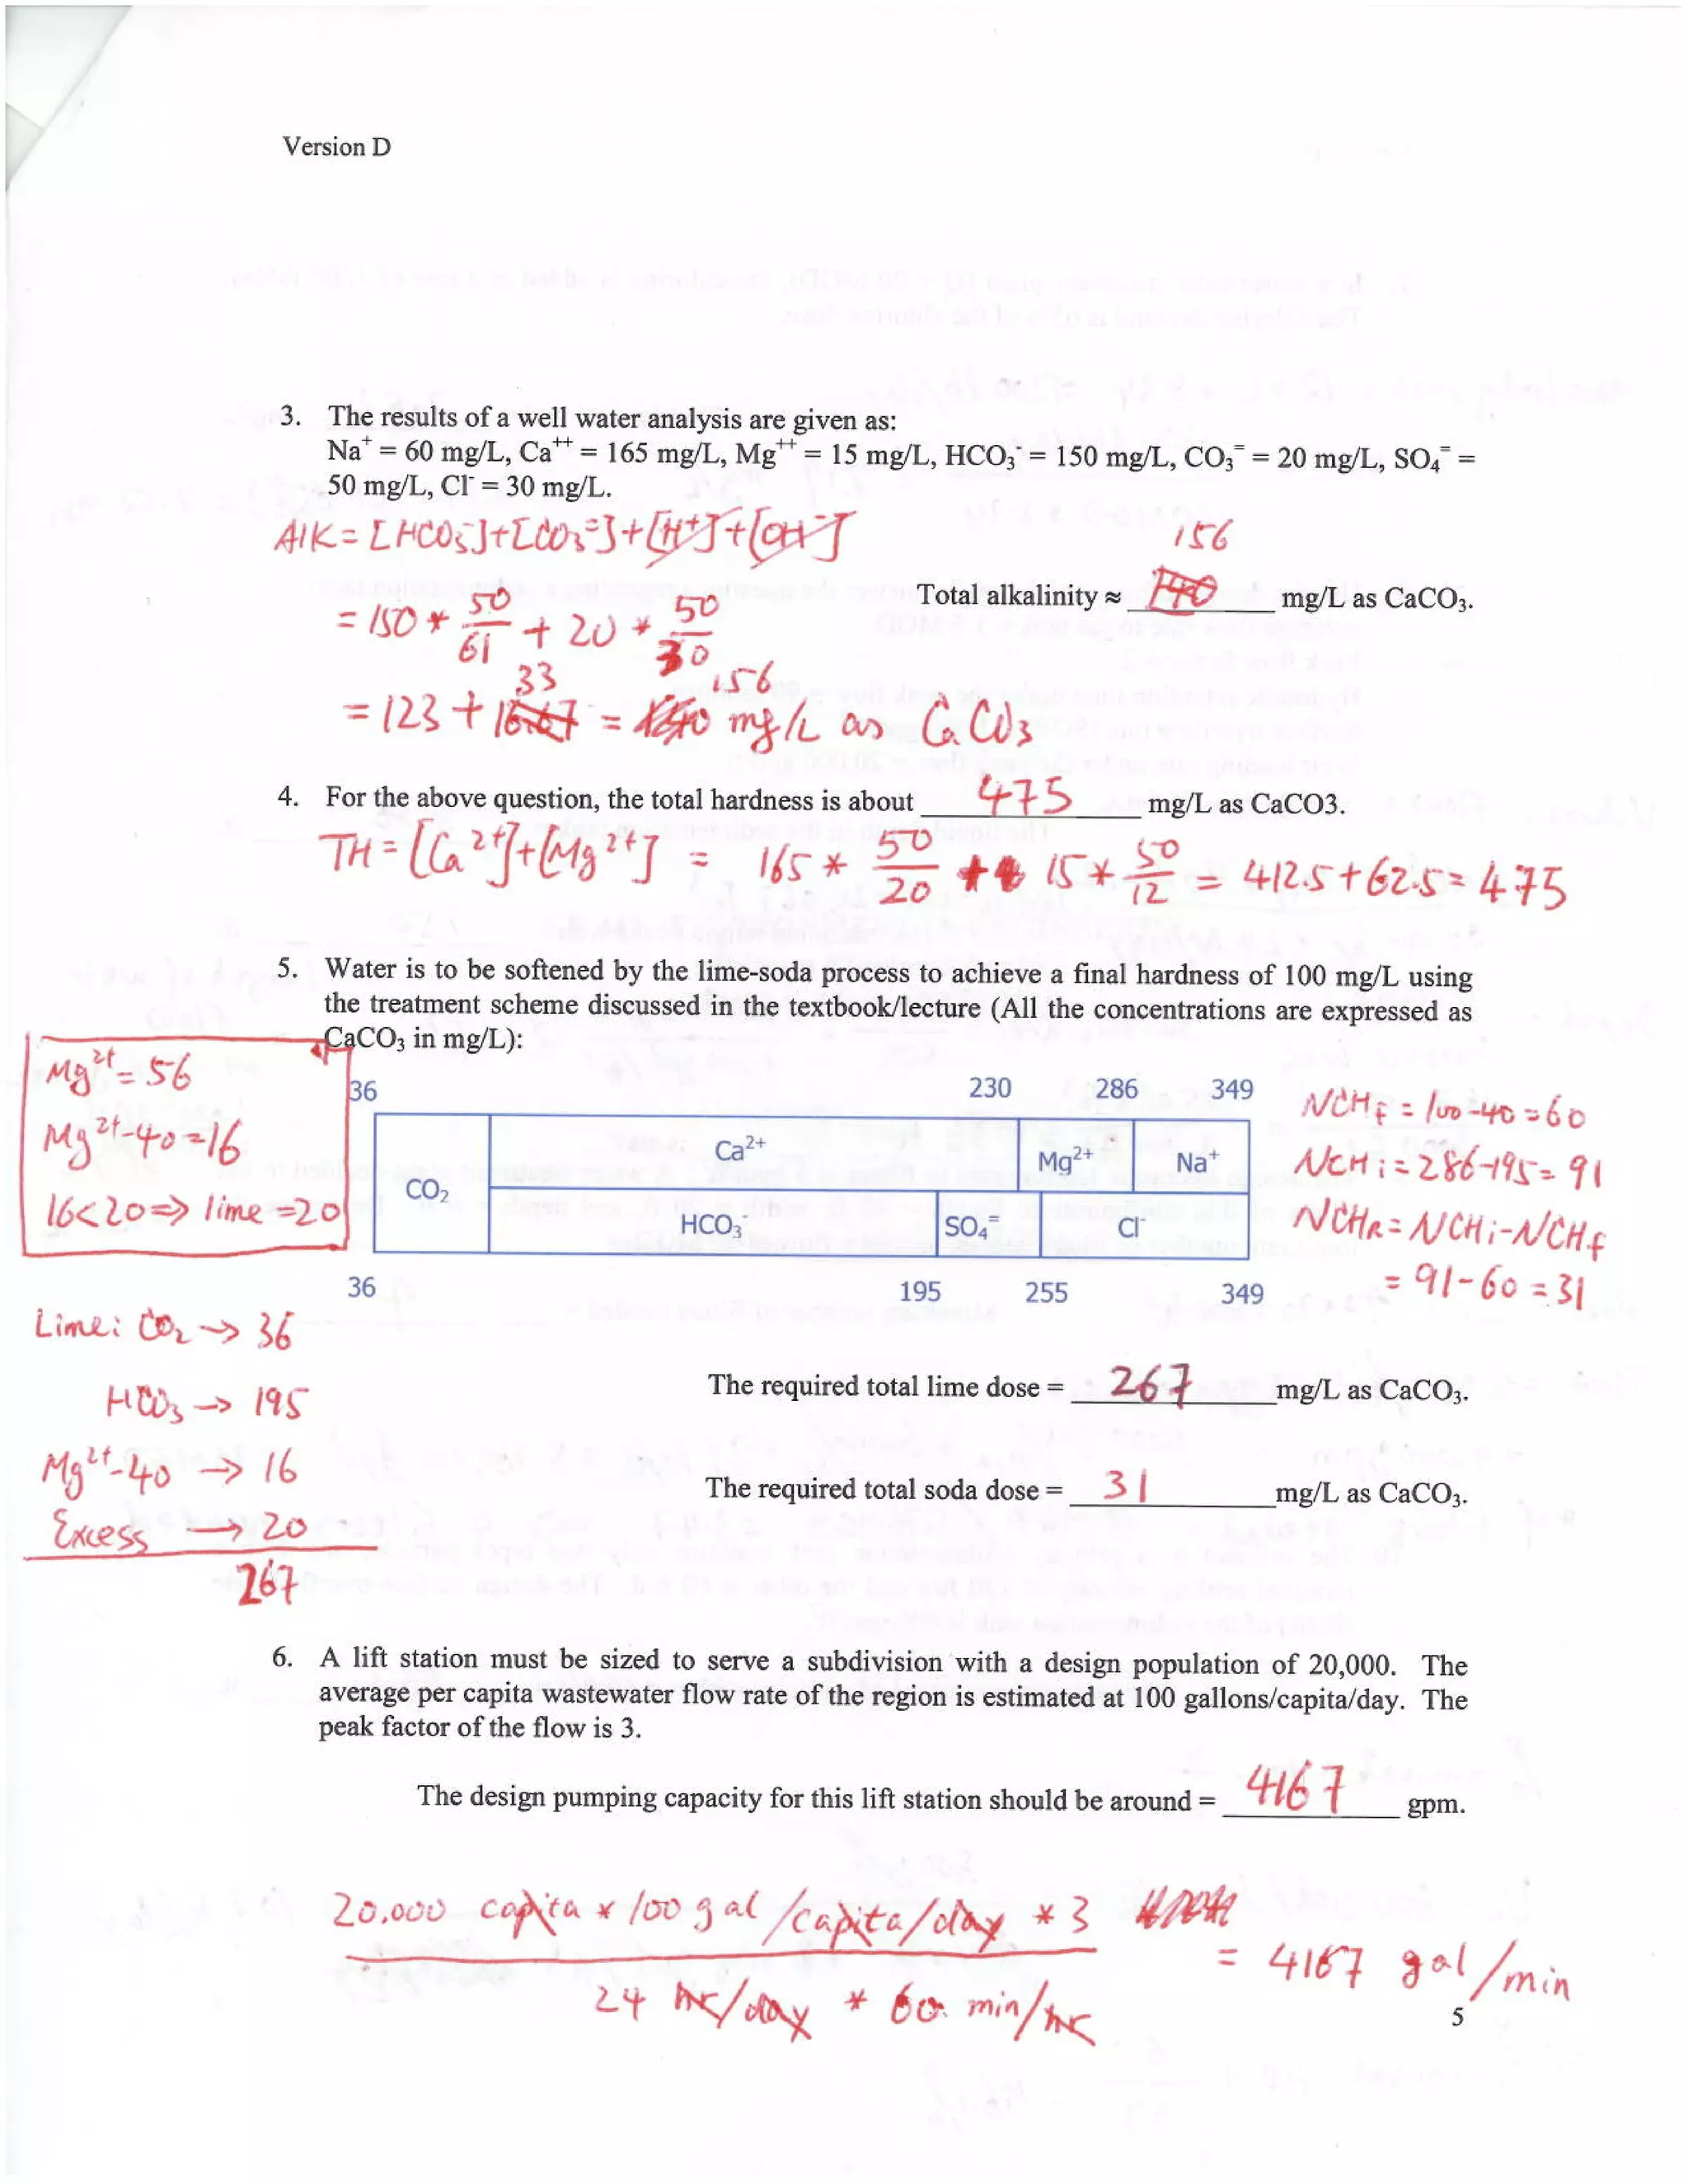 Version D
3. The results of a well water analysis are given as:
Na⁺ = 60 mg/L, Ca⁺⁺ = 165 mg/L, Mg⁺⁺ = 15 mg/L, HCO₃⁻ = 150 mg/L, CO₃⁼ = 20 mg/L, SO₄⁼ =
50 mg/L, Cl⁻ = 30 mg/L.
Alk = [HCO₃⁻]+[CO₃⁼]+[H⁺]+[OH⁻]
156
Total alkalinity ≈ 140 mg/L as CaCO₃.
= 150 * 50/61 + 20 * 50/30
33 156
= 123 + 16.67 = 140 mg/L as CaCO₃
4. For the above question, the total hardness is about 475 mg/L as CaCO3.
TH = [Ca²⁺]+[Mg²⁺] = 165 * 50/20 + 15 * 50/12 = 412.5 + 62.5 = 475
5. Water is to be softened by the lime-soda process to achieve a final hardness of 100 mg/L using
the treatment scheme discussed in the textbook/lecture (All the concentrations are expressed as
CaCO₃ in mg/L):
Mg²⁺ = 56
Mg²⁺-40 = 16
16<20 => lime = 20
36 230 286 349
Ca²⁺ Mg²⁺ Na⁺
CO₂
HCO₃⁻ SO₄⁼ Cl⁻
36 195 255 349
NCHf = 100-40 = 60
NCHi = 286-195 = 91
NCHR = NCHi-NCHf
= 91-60 = 31
Lime: CO₂ → 36
HCO₃ → 195
Mg²⁺-40 → 16
Excess → 20
267
The required total lime dose = 267 mg/L as CaCO₃.
The required total soda dose = 31 mg/L as CaCO₃.
6. A lift station must be sized to serve a subdivision with a design population of 20,000. The
average per capita wastewater flow rate of the region is estimated at 100 gallons/capita/day. The
peak factor of the flow is 3.
The design pumping capacity for this lift station should be around = 4167 gpm.
20,000 capita * 100 gal/capita/day * 3
= 4167 gal/min
24 hr/day * 60 min/hr
5